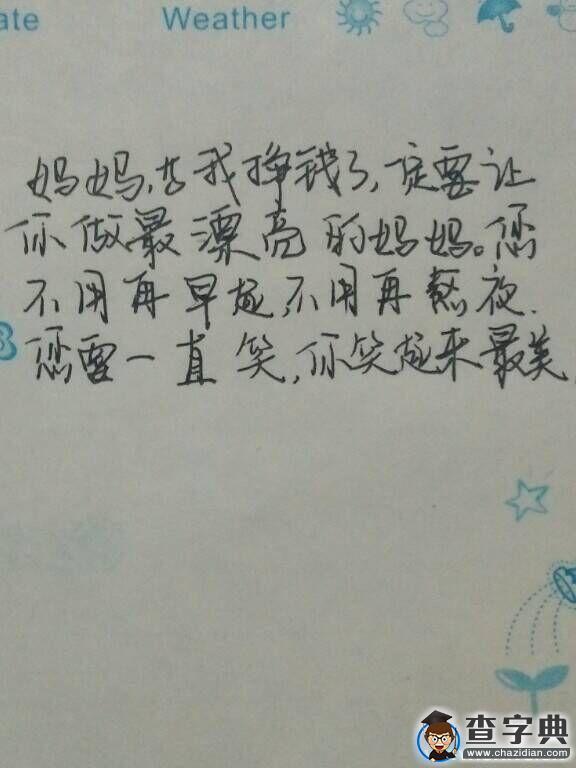 ate Weather
妈妈,我挣钱了,定要让
你做最漂亮的妈妈。您
不用再早起,不用再熬夜.
您要一直笑,你笑起来最美,
查字典
www.chazidian.com